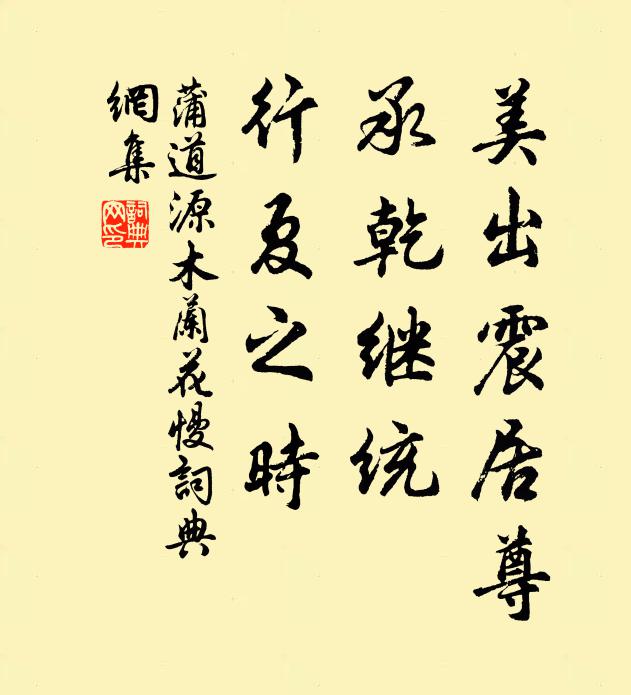 美出震居尊
承乾继统
行夏之時
蒲道源木蘭花慢詞典
網集
詞典
网印